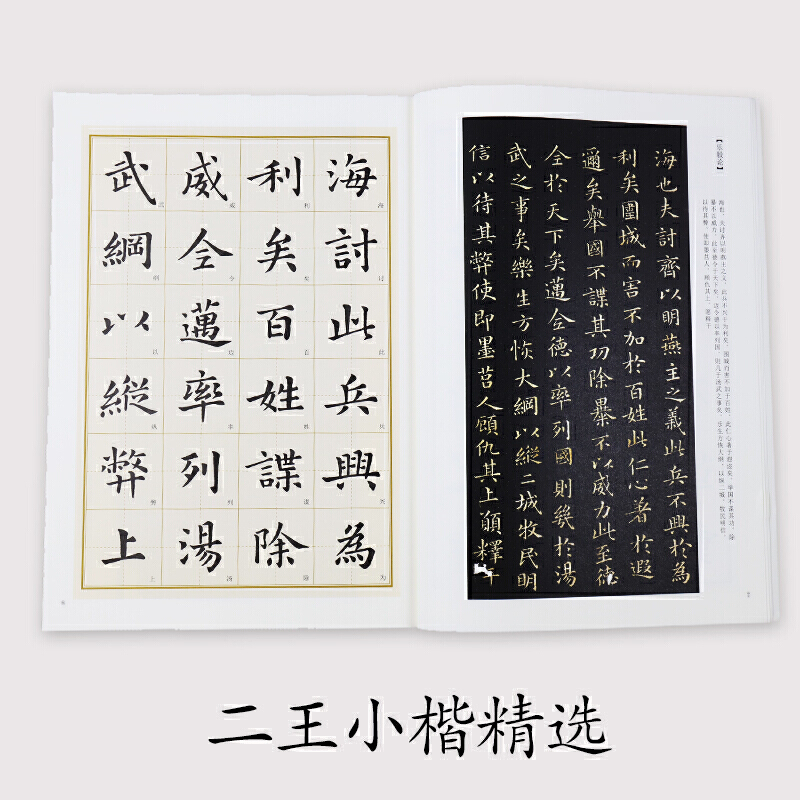 海討此兵興為
利矣百姓諜除
威全邁率列湯
武綱以縱弊上
【乐毅论】
海也夫討齊以明燕主之義此兵不興於為
利矣圍城而害不加於百姓此仁心著於遐
邇矣舉國不諜其功除暴不以威力此至德
全於天下矣邁全德以率列國則幾於湯
武之事矣樂生方恢大綱以縱二城牧民明
信以待其弊使即墨莒人顧仇其上願釋干
二王小楷精选